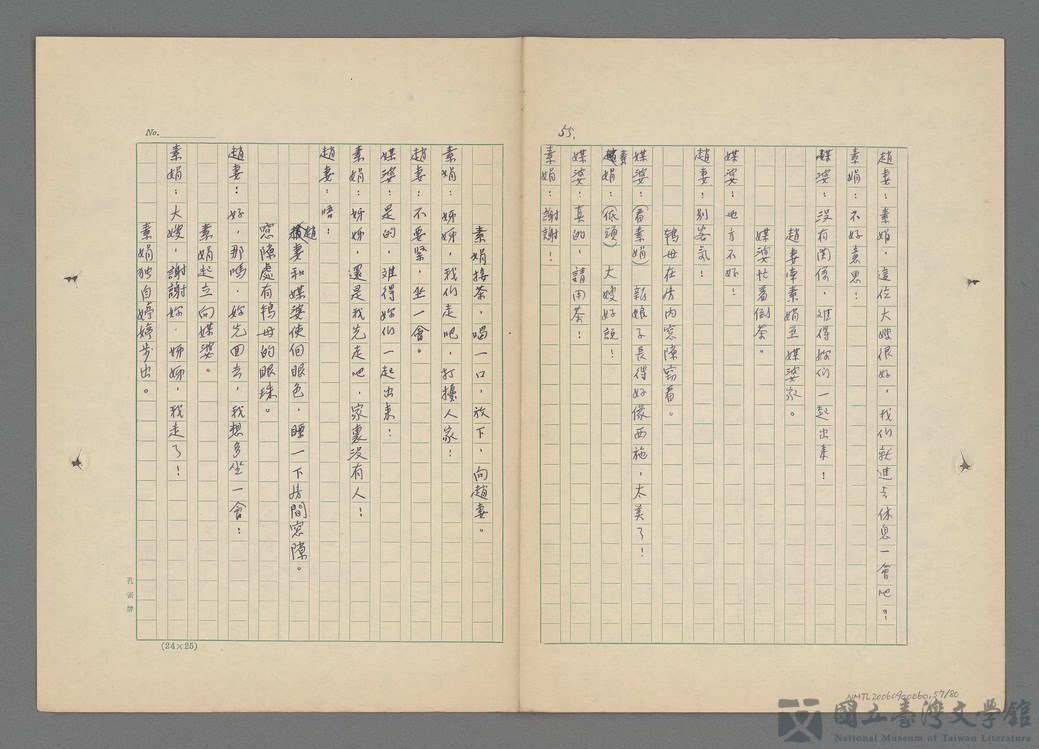 55.
趙妻：素娟，這位大嫂很好，我们就進去休息一會吧。！
素娟：不好意思！
媒婆：没有関係，难得妳们一起出来！
趙妻牽素娟至媒婆家。
媒婆忙着倒茶。
媒婆：地方不好！
趙妻：别客氣！
鸨母在房内窓隙窃看。
媒婆：（看素娟）新娘子長得好像西施，太美了！
素娟：（低頭）大嫂好說！
媒婆：真的，請用茶！
素娟：謝謝！
No.
素娟接茶，喝一口，放下，向趙妻。
素娟：姊姊，我们走吧，打擾人家！
趙妻：不要緊，坐一會。
媒婆：是的，难得妳们一起出来！
素娟：姊姊，還是我先走吧，家裏没有人！
趙妻：唔！
趙妻和媒婆使個眼色，睡一下房間窓隙。
窓隙處有鸨母的眼珠。
趙妻：好，那嗎，妳先回去，我想多坐一會！
素娟起立向媒婆。
素娟：大嫂，謝謝妳，姊姊，我走了！
素娟独自婷婷步出。
孔雀牌
(24×25)
NMTL20060900060.57/80
國立臺灣文學館
National Museum of Taiwan Literature